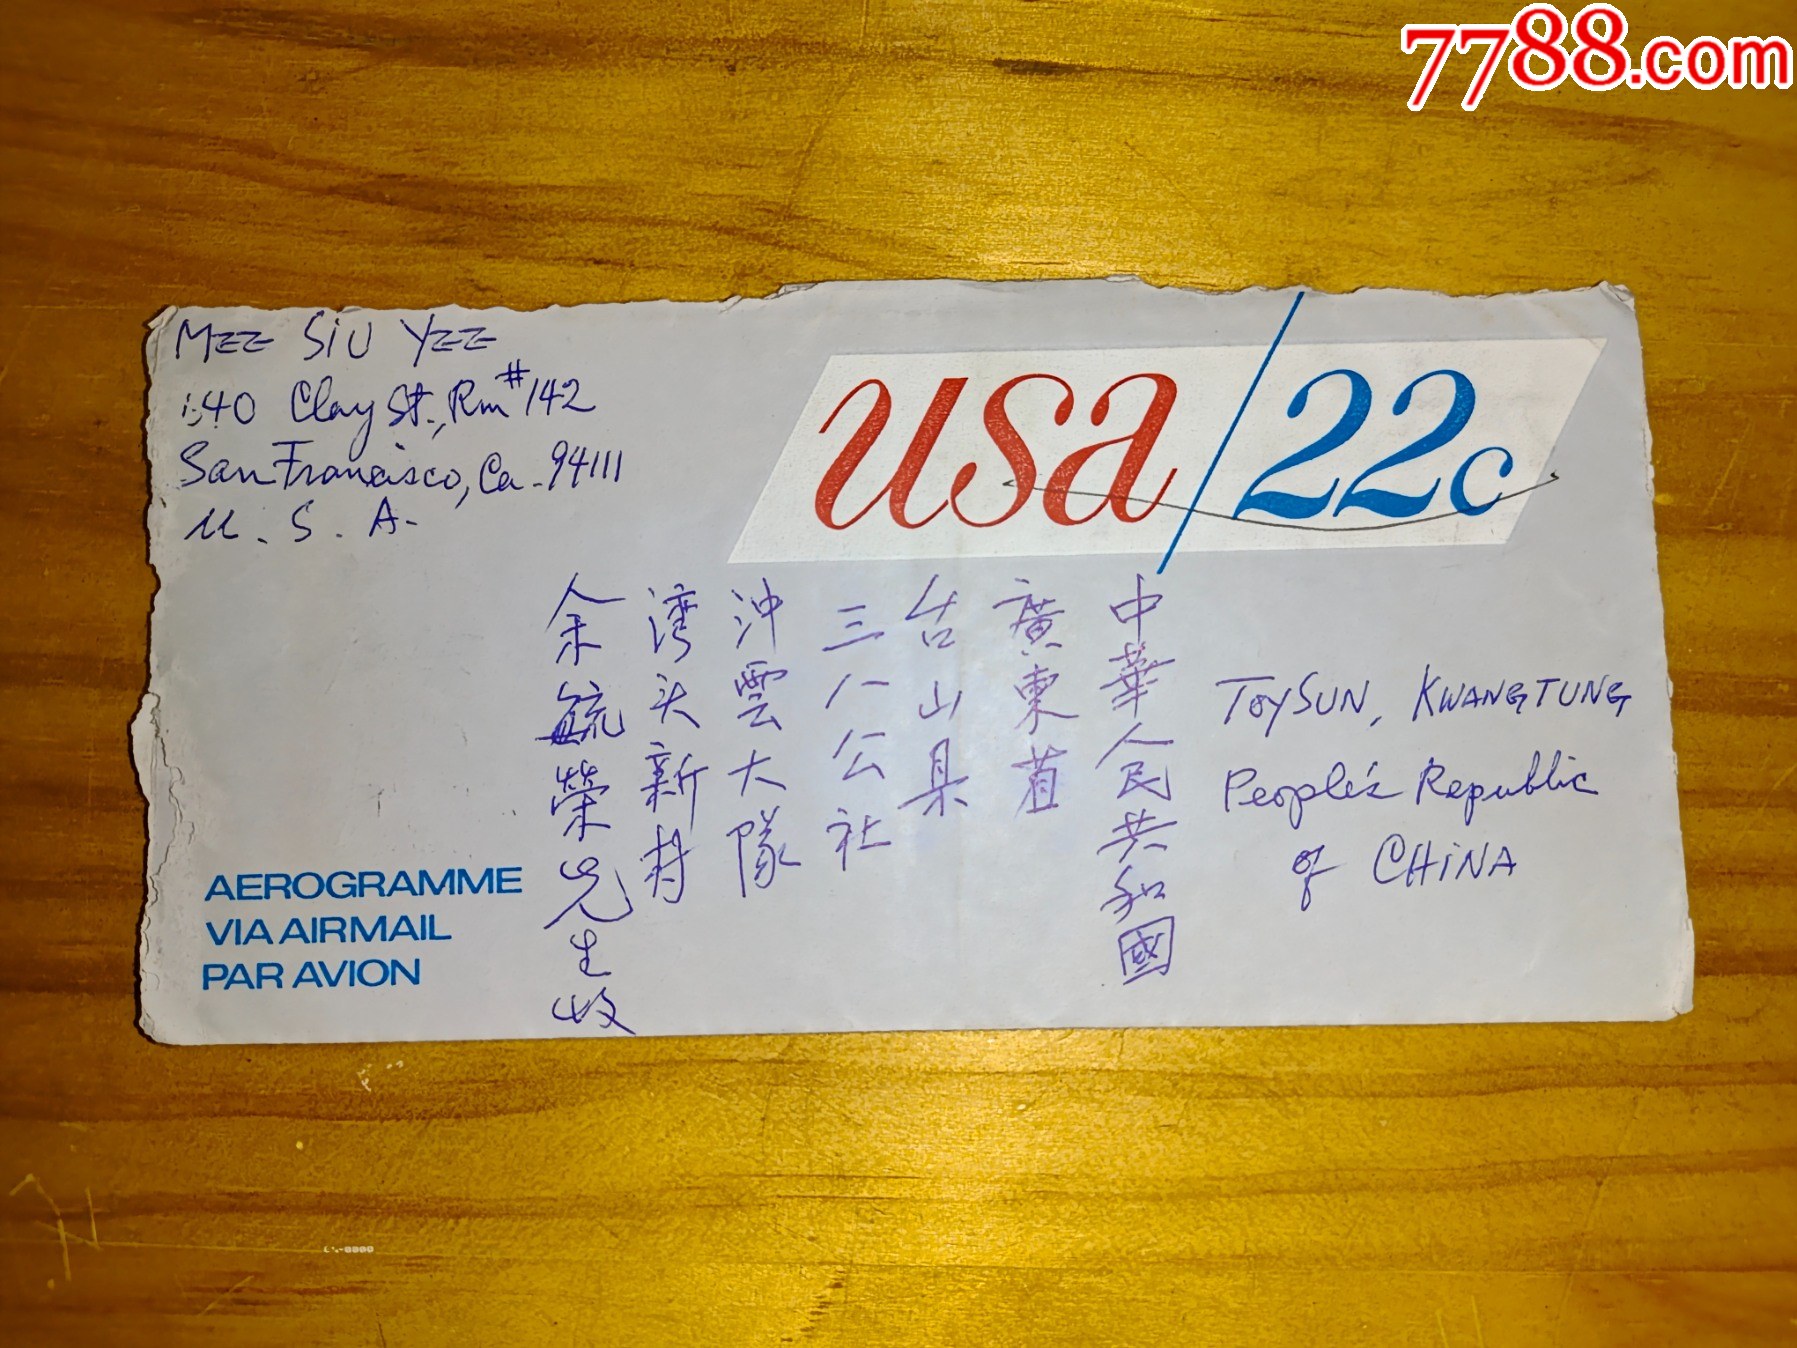 7788.com
MEE SiU YEE
540 Clay St., Rm #142
San Francisco, Ca. 94111
U. S. A.
usa/22c
中華人民共和國
廣東省
台山县
三八公社
沖雲大隊
湾头新村
余毓榮先生收
TOYSUN, KWANGTUNG
People's Republic
of CHiNA
AEROGRAMME
VIA AIRMAIL
PAR AVION